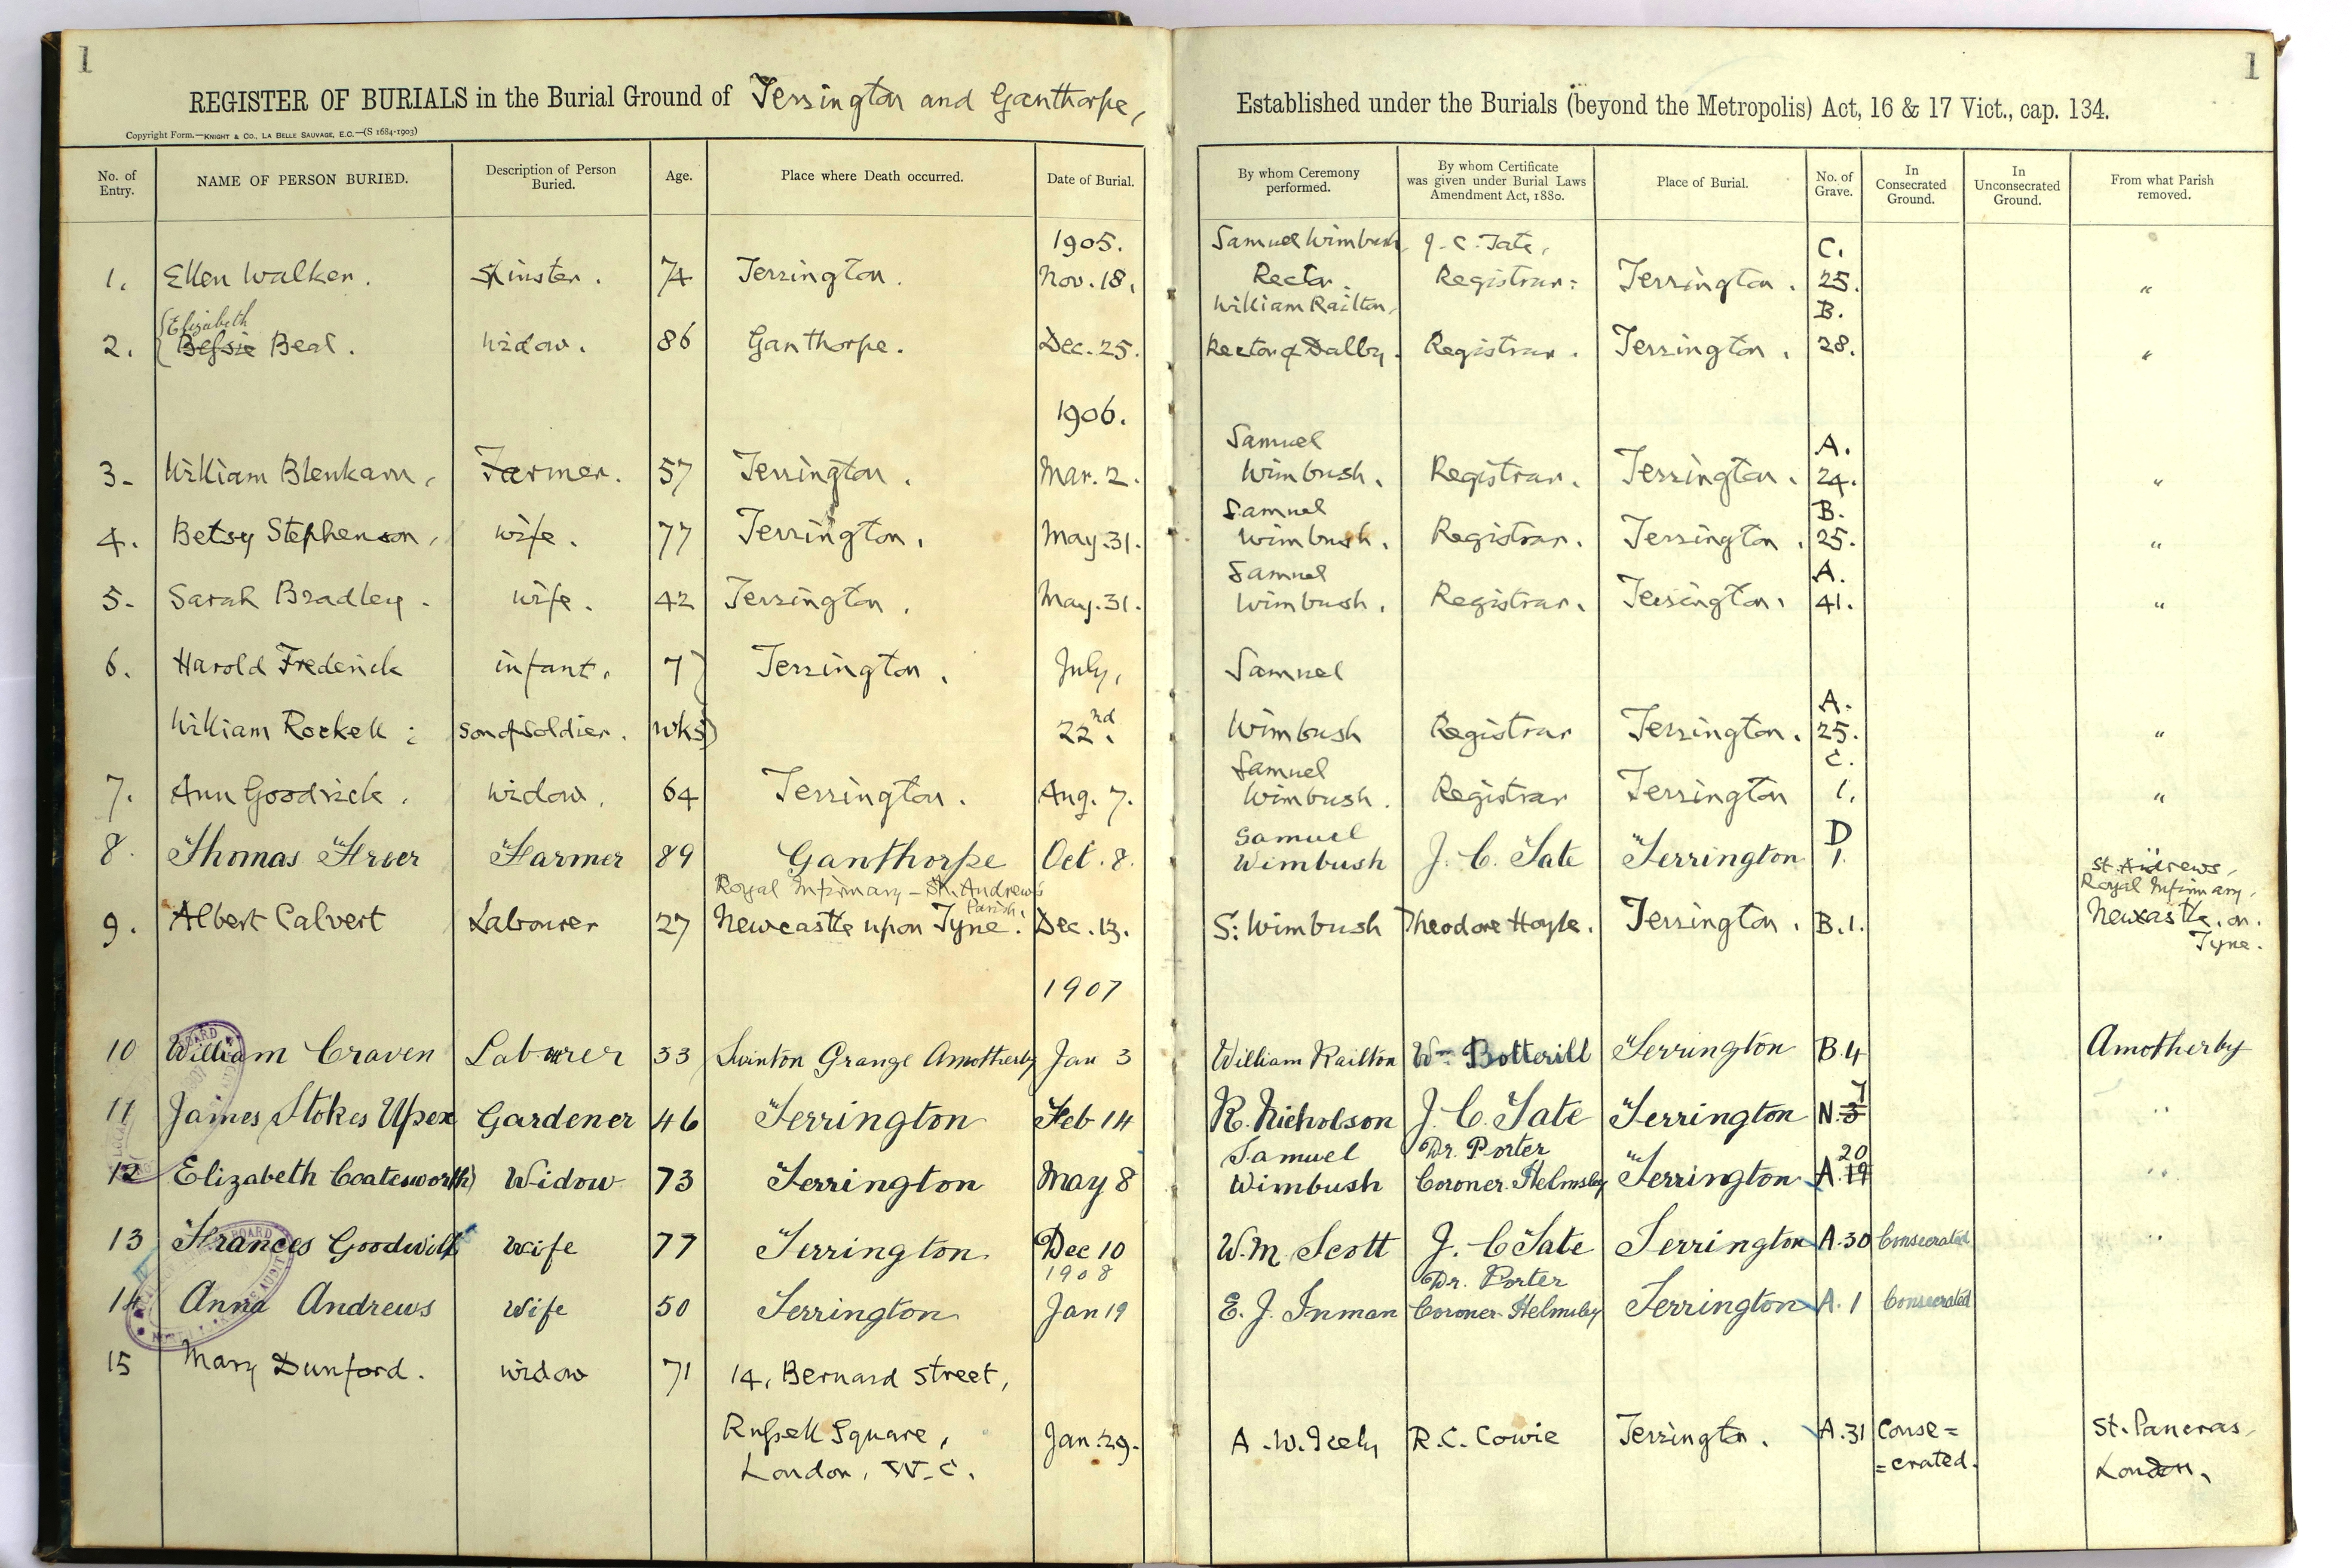 1
REGISTER OF BURIALS in the Burial Ground of Terrington and Ganthorpe,
Copyright Form.—KNIGHT & CO., LA BELLE SAUVAGE, E.C.—(S 1684-1903)
No. of Entry. NAME OF PERSON BURIED. Description of Person Buried. Age. Place where Death occurred. Date of Burial.
1905.
1. Ellen Walker. Spinster. 74 Terrington. Nov. 18.
Elizabeth
2. Bessie Beal. Widow. 86 Ganthorpe. Dec. 25.
1906.
3. William Blenkarn, Farmer. 57 Terrington. Mar. 2.
4. Betsy Stephenson, wife. 77 Terrington. May. 31.
5. Sarah Bradley. wife. 42 Terrington. May. 31.
6. Harold Frederick infant. 7 Terrington. July,
William Rockell; Son of Soldier. wks 22nd.
7. Ann Goodrick. Widow. 64 Terrington. Aug. 7.
8. Thomas Freer Farmer 89 Ganthorpe Oct. 8.
Royal Infirmary – St. Andrew's
Parish.
9. Albert Calvert Labourer 27 Newcastle upon Tyne. Dec. 13.
1907
10 William Craven Labourer 33 Swinton Grange Amotherby Jan 3
11 James Stokes Upex Gardener 46 Terrington Feb 14
12 Elizabeth Coatesworth Widow 73 Terrington May 8
13 Frances Goodwill Wife 77 Terrington Dec 10
1908
14 Anna Andrews Wife 50 Terrington Jan 19
15 Mary Dunford. Widow 71 14, Bernard Street,
Russell Square, Jan. 29.
London, W.C.
1
Established under the Burials (beyond the Metropolis) Act, 16 & 17 Vict., cap. 134.
By whom Ceremony performed. By whom Certificate was given under Burial Laws Amendment Act, 1880. Place of Burial. No. of Grave. In Consecrated Ground. In Unconsecrated Ground. From what Parish removed.
Samuel Wimbush, J. C. Tate, C.
Rector. Registrar: Terrington. 25. "
William Railton, B.
Rector of Dalby. Registrar. Terrington. 28. "
Samuel A.
Wimbush. Registrar. Terrington. 24. "
Samuel B.
Wimbush. Registrar. Terrington. 25. "
Samuel A.
Wimbush. Registrar. Terrington. 41. "
Samuel
A.
Wimbush Registrar Terrington. 25. "
Samuel C.
Wimbush. Registrar Terrington 1. "
Samuel D
Wimbush J. C. Tate Terrington 1.
St. Andrews,
Royal Infirmary,
S: Wimbush Theodore Hoyle. Terrington. B.1. Newcastle. on.
Tyne.
William Railton Wm Botterill Terrington B.4 Amotherby
7
R. Nicholson J. C. Tate Terrington N. 3 "
Samuel Dr. Porter 20
Wimbush Coroner. Helmsley Terrington A. 19 "
W. M. Scott J. C Tate Terrington A.30 Consecrated "
Dr. Porter
E. J. Inman Coroner. Helmsley Terrington A. 1 Consecrated
A. W. R.C. Cowie Terrington. A.31 Conse= St. Pancras,
=crated. London,